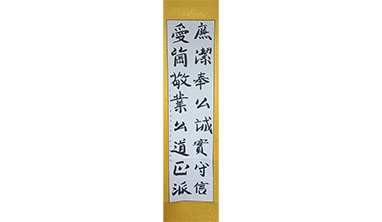 廉潔奉公誠實守信
愛崗敬業公道正派